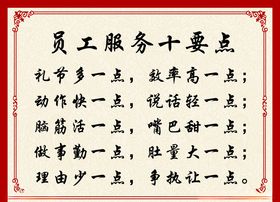 员工服务十要点
礼节多一点，效率高一点；
动作快一点，说话轻一点；
脑筋活一点，嘴巴甜一点；
做事勤一点，肚量大一点；
理由少一点，争执让一点。